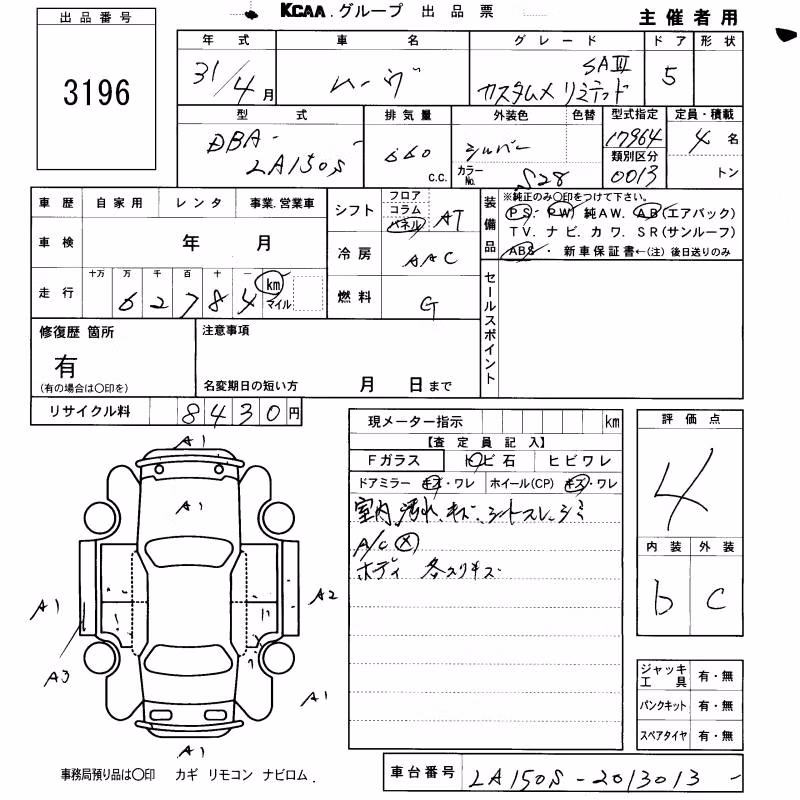 KCAA.グループ 出品票
主催者用
出品番号
3196
年式 車名 グレード ドア 形状
31/4月 ムーヴ カスタムX リミテッド SAIII 5
型式 排気量 外装色 色替 型式指定 定員・積載
DBA-LA150S 660 c.c. シルバー 17964 4名
カラーNo. S28 類別区分 0013 トン
車歴 自家用 レンタ 事業.営業車
車検 年 月
走行 十万 万 千 百 十 一 km マイル
6 2 7 8 4
シフト フロア コラム パネル AT
冷房 AAC
燃料 G
装備品
※純正のみ〇印をつけて下さい。
PS・PW・純AW. AB(エアバック)
TV. ナビ. カワ. SR(サンルーフ)
ABS・新車保証書←(注)後日送りのみ
セールスポイント
修復歴 箇所
有
(有の場合は〇印を)
注意事項
名変期日の短い方 月 日まで
リサイクル料 8430円
現メーター指示 km
【査定員記入】
Fガラス トビ石 ヒビワレ
ドアミラー キズ・ワレ ホイール(CP) キズ・ワレ
室内汚れ、キズ、シートスレ、シミ
A/C X
ボディ 各スリキズ
評価点
4
内装 外装
b C
A1
A1
A1
A2
A3
A1
A1
ジャッキ工具 有・無
パンクキット 有・無
スペアタイヤ 有・無
事務局預り品は〇印 カギ リモコン ナビロム.
車台番号 LA150S-2013013